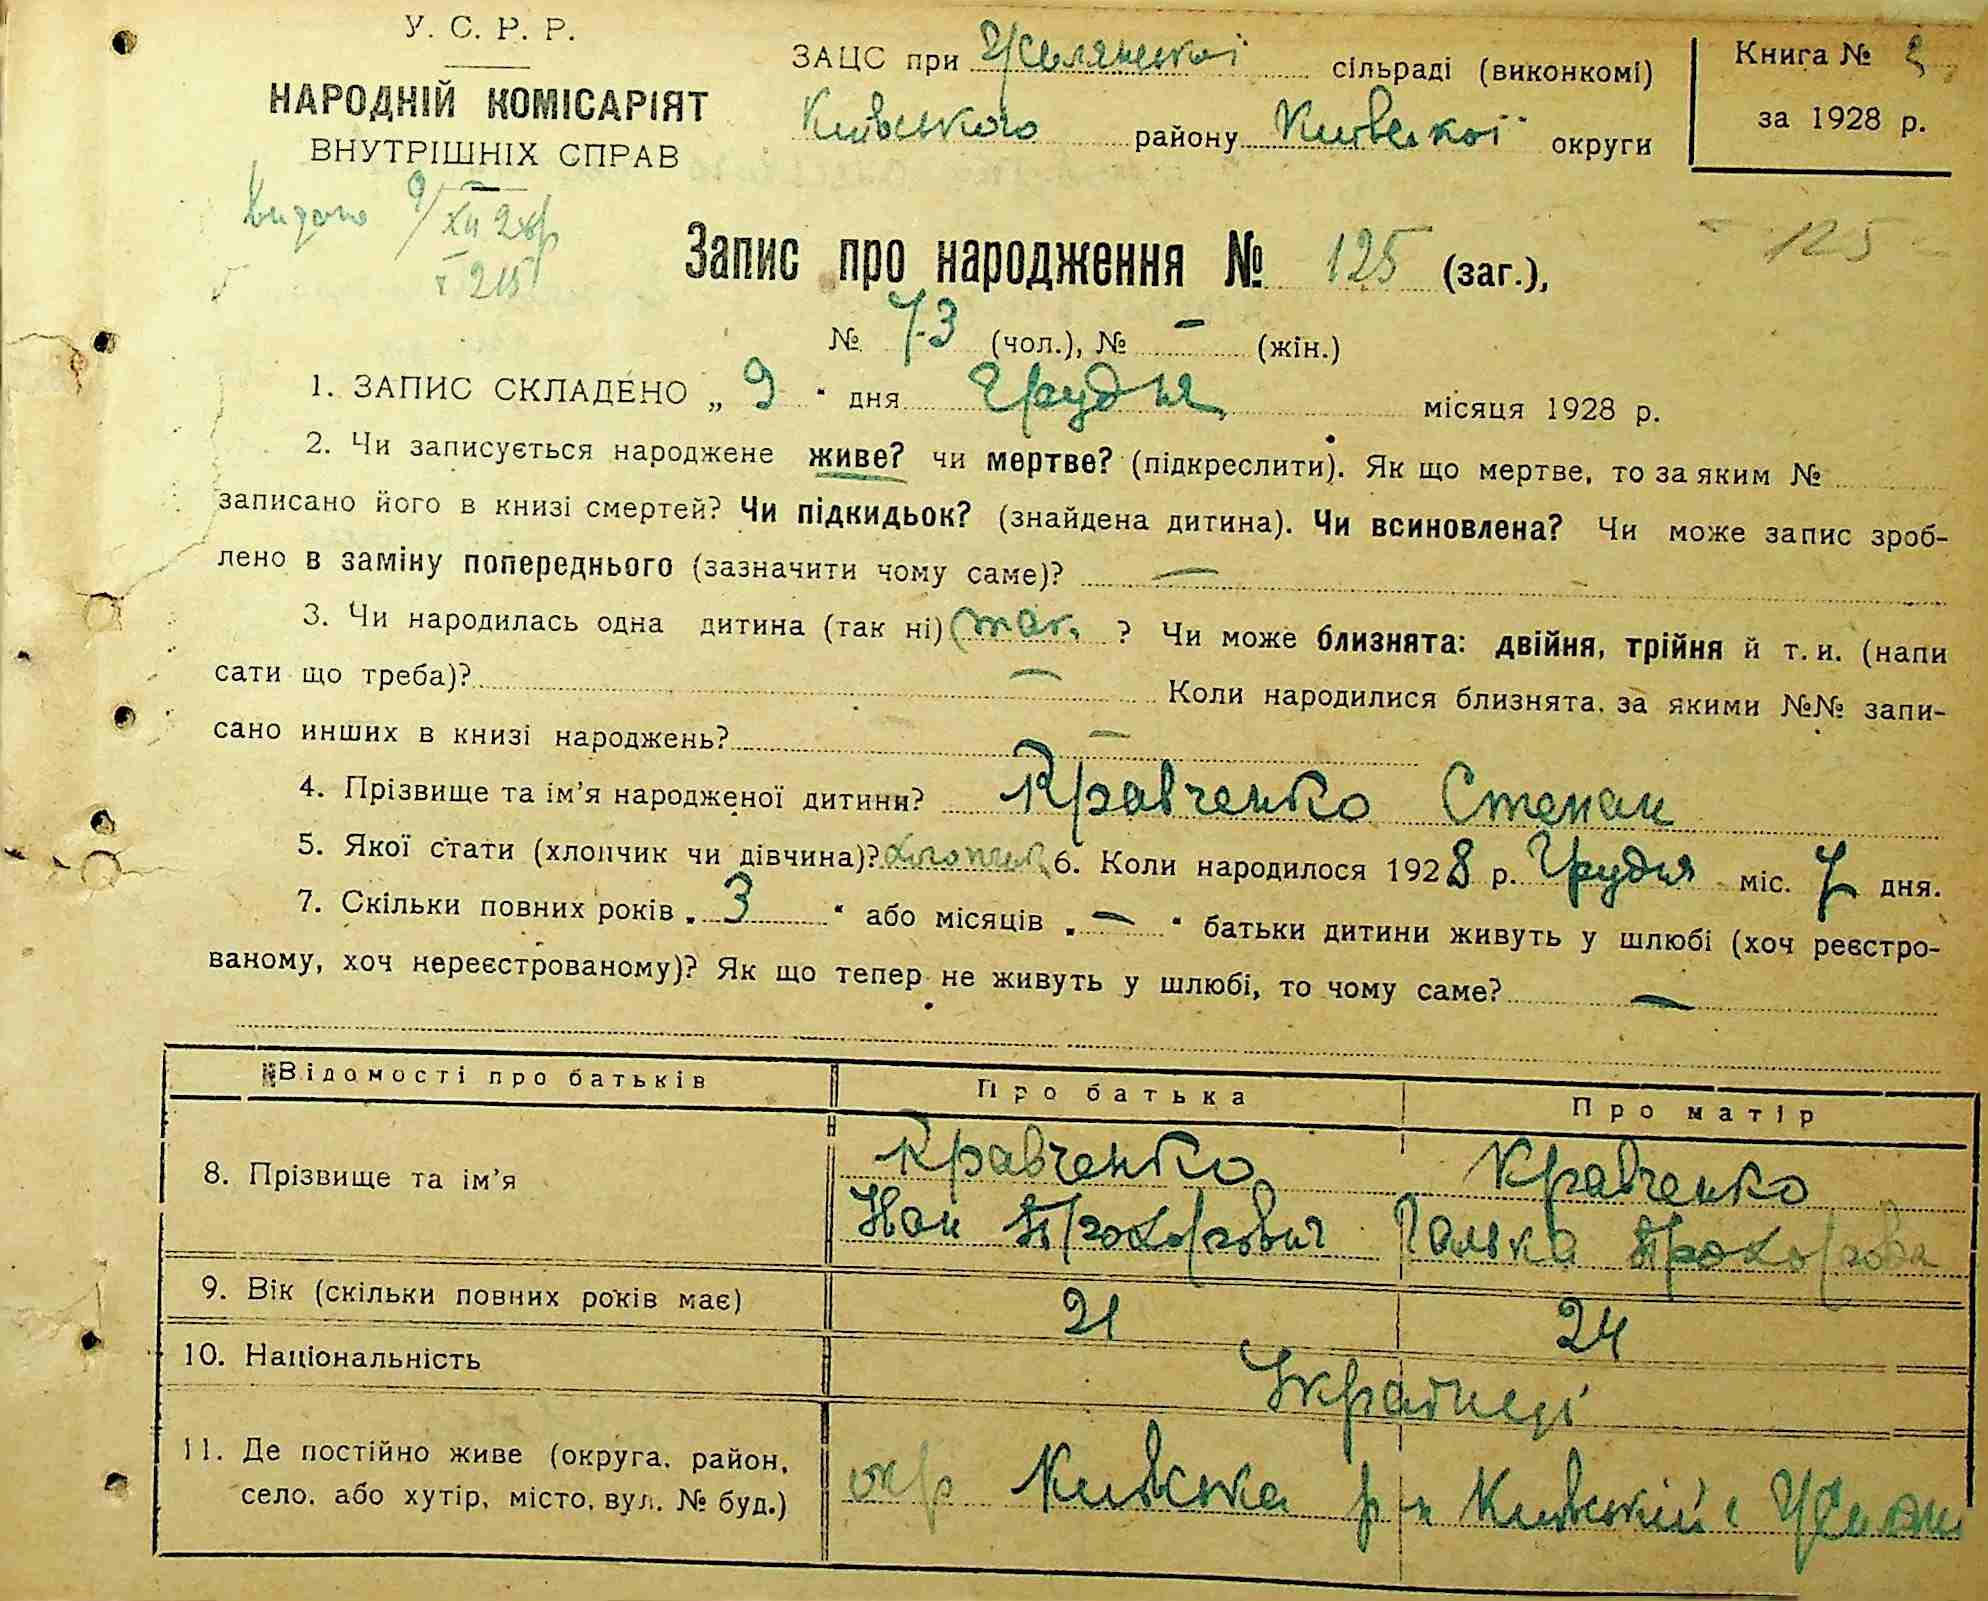 У. С. Р. Р.
НАРОДНІЙ КОМІСАРІЯТ
ВНУТРІШНІХ СПРАВ
ЗАЦС при сільраді (виконкомі)
Київського району Київської округи
Книга №
за 1928 р.
Видано 9/XII 28р
215
Запис про народження № 125 (заг.),
125
№ 73 (чол.), № – (жін.)
1. ЗАПИС СКЛАДЕНО „ 9 " дня Грудня місяця 1928 р.
2. Чи записується народжене живе? чи мертве? (підкреслити). Як що мертве, то за яким №
записано його в книзі смертей? Чи підкидьок? (знайдена дитина). Чи всиновлена? Чи може запис зроб-
лено в заміну попереднього (зазначити чому саме)? —
3. Чи народилась одна дитина (так ні) так. ? Чи може близнята: двійня, трійня й т. и. (напи
сати що треба)? — Коли народилися близнята, за якими №№ запи-
сано инших в книзі народжень? —
4. Прізвище та ім'я народженої дитини? Кравченко Степан
5. Якої стати (хлопчик чи дівчина)? хлопчик 6. Коли народилося 1928 р. Грудня міс. 7 дня.
7. Скільки повних років „ 3 " або місяців „ – " батьки дитини живуть у шлюбі (хоч реєстро-
ваному, хоч нереєстрованому)? Як що тепер не живуть у шлюбі, то чому саме? —
Відомості про батьків Про батька Про матір
8. Прізвище та ім'я Кравченко Кравченко
Іван Прохорович Галька Прохорова
9. Вік (скільки повних років має) 21 24
10. Національність Українці
11. Де постійно живе (округа, район,
село, або хутір, місто, вул. № буд.) окр Київська р-н Київський с